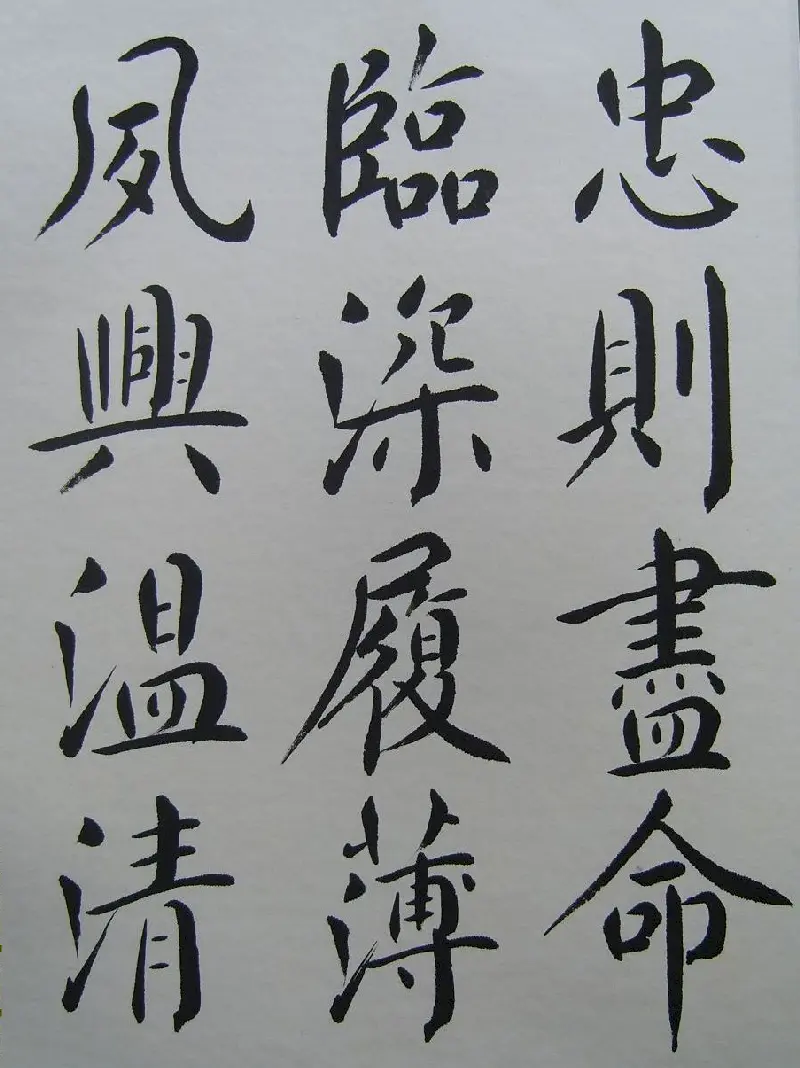 忠則盡命
臨深履薄
夙興温清